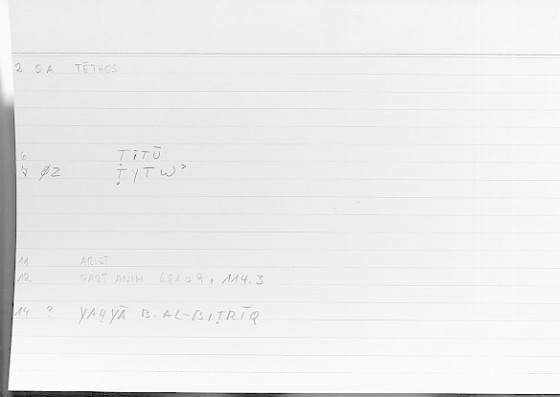 2 GA TĒTHOS
6 ṬiTŪ
7 ØZ ṬYTWʾ
11 ARIST
12 PART ANIM 681 a 9, 114.3
14 ? YAḤYĀ B. AL-BIṬRĪQ